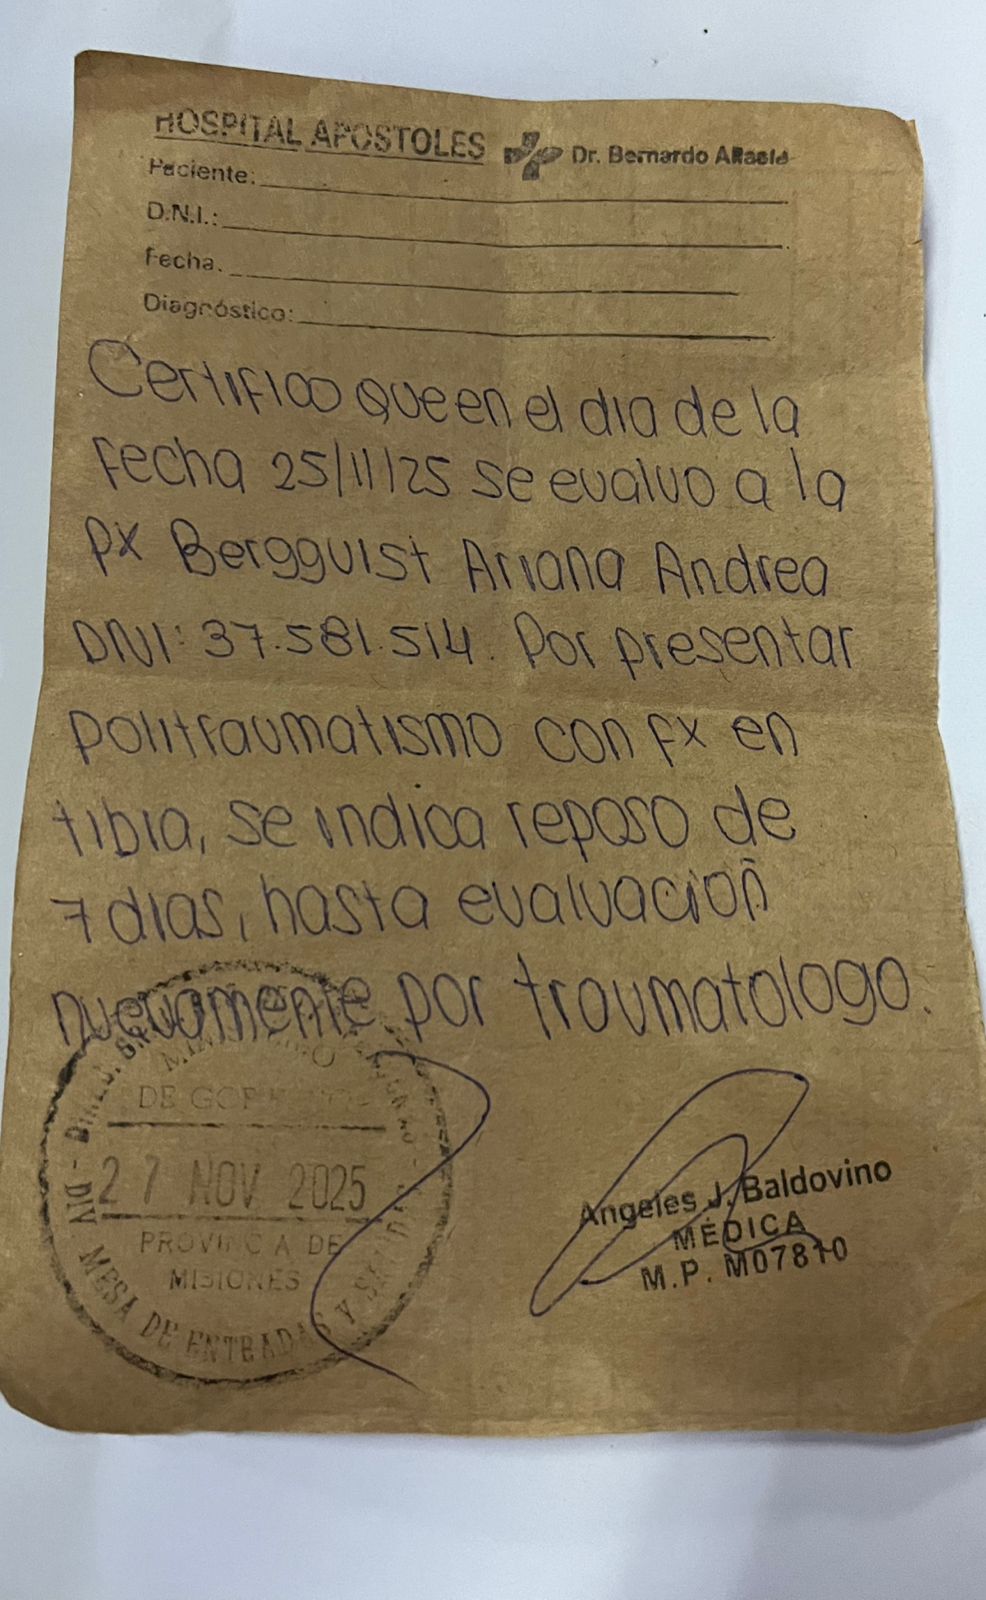 HOSPITAL APOSTOLES Dr. Bernardo
Paciente:
D.N.I.:
Fecha.
Diagnóstico:
Certifico que en el dia de la
Fecha 25/11/25 se evaluo a la
px Bergguist Ariana Andrea
DNI: 37.581.514. Por presentar
politraumatismo con fx en
tibia, se indica reposo de
7 dias, hasta evaluacion
nuevamente por traumatologo.
DE
27 NOV 2025
PROVINCIA DE
MISIONES
DIV MESA DE ENTRADAS Y
Angeles J. Baldovino
MÉDICA
M.P. M07810